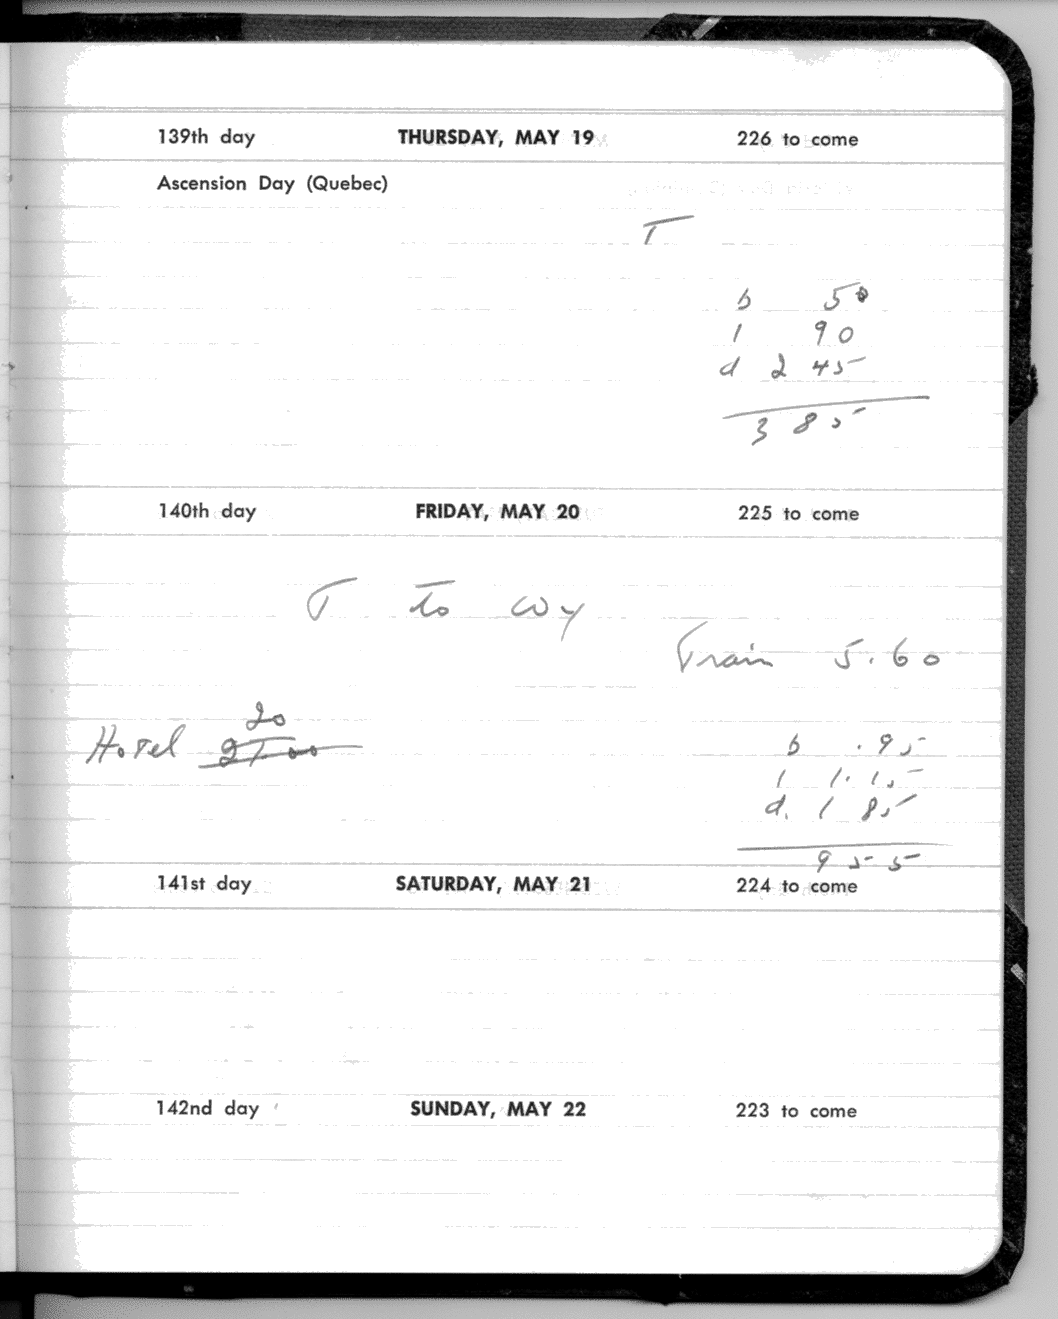 139th day THURSDAY, MAY 19 226 to come
Ascension Day (Quebec)
T
b 50
l 90
d 2 45
3 85
140th day FRIDAY, MAY 20 225 to come
T to Wy
Train 5.60
20
Hotel 21.00
b .95
l 1.15
d. 1 85
9 55
141st day SATURDAY, MAY 21 224 to come
142nd day SUNDAY, MAY 22 223 to come